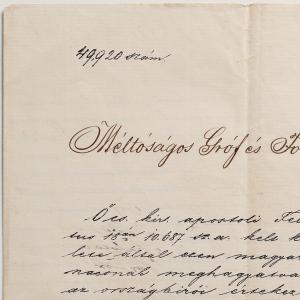 49,920 szám
Méltóságos Gróf és Fő
Ő cs. kir. apostoli Fel
tus 10.687 sz. a. kelt k
lete által ezen magyar
meghagyatva
az országbirói értekez